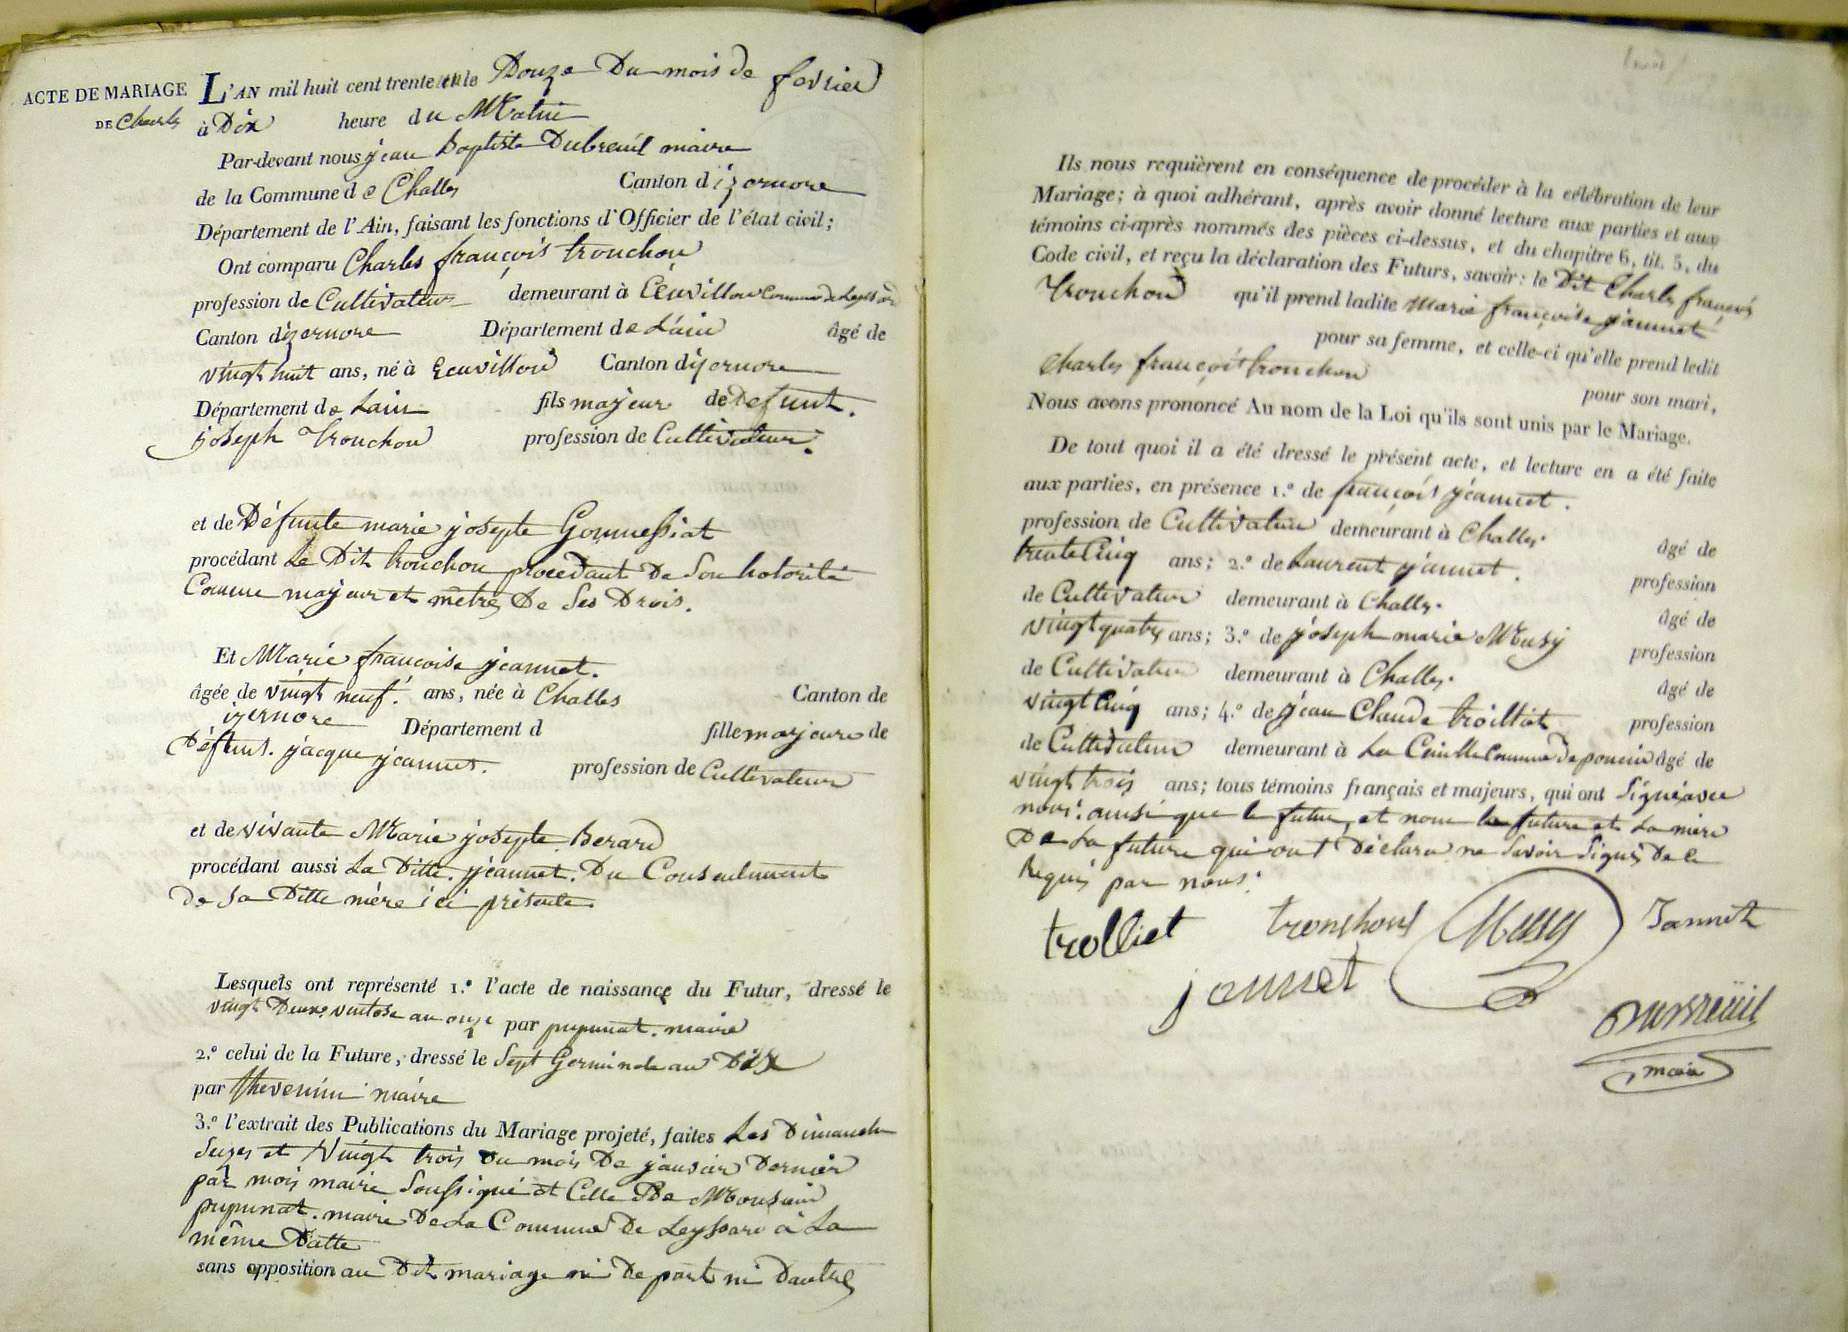 ACTE DE MARIAGE
DE Charles
L'AN mil huit cent trente et le Douze Du mois de fevrier
à Dix heure du Matin
Par-devant nous jean Baptiste Dubreüil maire
de la Commune de Challes Canton d izernore
Département de l'Ain, faisant les fonctions d'Officier de l'état civil;
Ont comparu Charles françois tronchon
profession de Cultivateur demeurant à Commune de Leyssard
Canton d izernore Département de L'ain âgé de
vingt huit ans, né à Canton d izernore
Département de Lain fils majeur de Defunt.
joseph Tronchon profession de Cultivateur.
et de Défunte marie josepte Gonnessiat
procédant Le Dit tronchon procedant De Son hotorité
Comme majeur et mêtre De Ses Drois.
Et Marie francoise jeannet.
âgée de vingt neuf. ans, née à Challes Canton de
izernore Département d fille majeure de
Défunt. jacque jeannet. profession de Cultivateur
et de vivante Marie josepte Berard
procédant aussi La Ditte. jeannet. Du Consentement
de sa Ditte mère ici présente.
Lesquels ont représenté 1.º l'acte de naissance du Futur, dressé le
vingt Deux ventose an onze par pupunat. maire
2.º celui de la Future, dressé le Sept Germinale an Dix
par thevenin maire
3.º l'extrait des Publications du Mariage projeté, faites Les Dimanche
Seizes et Vingt trois du mois De janvier Dernier
par mois maire Soussigné et Celle De Monsieur
pupunat. maire De La Commune De Leyssard à La
même Datte
sans opposition au Dit mariage ni De part ni Dautre
Ils nous requièrent en conséquence de procéder à la célébration de leur
Mariage; à quoi adhérant, après avoir donné lecture aux parties et aux
témoins ci-après nommés des pièces ci-dessus, et du chapitre 6, tit. 5, du
Code civil, et reçu la déclaration des Futurs, savoir: le Dit Charles françois
Tronchon qu'il prend ladite marie françoise jeannet
pour sa femme, et celle-ci qu'elle prend ledit
Charles françois tronchon
pour son mari,
Nous avons prononcé Au nom de la Loi qu'ils sont unis par le Mariage.
De tout quoi il a été dressé le présent acte, et lecture en a été faite
aux parties, en présence 1.º de françois jeannet.
profession de Cultivateur demeurant à Challes. âgé de
trente Cinq ans; 2.º de Laurent jeannet. profession
de Cultivateur demeurant à Challes. âgé de
vingt quatre ans; 3.º de joseph marie Musy profession
de Cultivateur demeurant à Challes. âgé de
vingt Cinq ans; 4.º de jean Claude trolliet profession
de Cultivateur demeurant à La Commune De poncin âgé de
vingt trois ans; tous témoins français et majeurs, qui ont Signé avec
nous. ainsi que le futur, et non la future et La mère
De La future qui ont Déclaré ne Savoir Signer De Ce
Requis par nous.
trolliet tronchon Musy Jannet
jannet
Dubreüil
maire